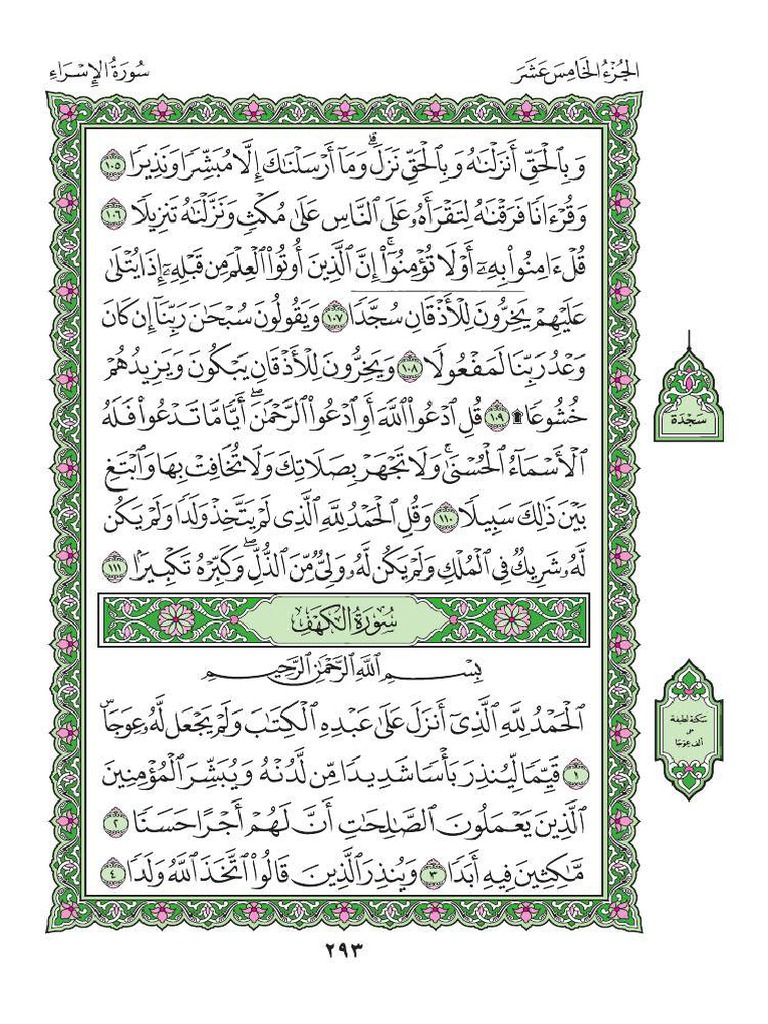 الجُزْءُ الخَامِسَ عَشَرَ
سُورَةُ الإِسْرَاءِ
وَبِٱلْحَقِّ أَنزَلْنَٰهُ وَبِٱلْحَقِّ نَزَلَ ۗ وَمَآ أَرْسَلْنَٰكَ إِلَّا مُبَشِّرًا وَنَذِيرًا ١٠٥
وَقُرْءَانًا فَرَقْنَٰهُ لِتَقْرَأَهُۥ عَلَى ٱلنَّاسِ عَلَىٰ مُكْثٍ وَنَزَّلْنَٰهُ تَنزِيلًا ١٠٦
قُلْ ءَامِنُوا۟ بِهِۦٓ أَوْ لَا تُؤْمِنُوٓا۟ ۚ إِنَّ ٱلَّذِينَ أُوتُوا۟ ٱلْعِلْمَ مِن قَبْلِهِۦٓ إِذَا يُتْلَىٰ
عَلَيْهِمْ يَخِرُّونَ لِلْأَذْقَانِ سُجَّدًا ١٠٧ وَيَقُولُونَ سُبْحَٰنَ رَبِّنَآ إِن كَانَ
وَعْدُ رَبِّنَا لَمَفْعُولًا ١٠٨ وَيَخِرُّونَ لِلْأَذْقَانِ يَبْكُونَ وَيَزِيدُهُمْ
خُشُوعًا ١٠٩ قُلِ ٱدْعُوا۟ ٱللَّهَ أَوِ ٱدْعُوا۟ ٱلرَّحْمَٰنَ ۖ أَيًّا مَّا تَدْعُوا۟ فَلَهُ
ٱلْأَسْمَآءُ ٱلْحُسْنَىٰ ۚ وَلَا تَجْهَرْ بِصَلَاتِكَ وَلَا تُخَافِتْ بِهَا وَٱبْتَغِ
بَيْنَ ذَٰلِكَ سَبِيلًا ١١٠ وَقُلِ ٱلْحَمْدُ لِلَّهِ ٱلَّذِى لَمْ يَتَّخِذْ وَلَدًا وَلَمْ يَكُن
لَّهُۥ شَرِيكٌ فِى ٱلْمُلْكِ وَلَمْ يَكُن لَّهُۥ وَلِىٌّ مِّنَ ٱلذُّلِّ ۖ وَكَبِّرْهُ تَكْبِيرًۢا ١١١
سَجْدَة
سُورَةُ الكَهْفِ
بِسْمِ ٱللَّهِ ٱلرَّحْمَٰنِ ٱلرَّحِيمِ
ٱلْحَمْدُ لِلَّهِ ٱلَّذِىٓ أَنزَلَ عَلَىٰ عَبْدِهِ ٱلْكِتَٰبَ وَلَمْ يَجْعَل لَّهُۥ عِوَجَاۜ
١ قَيِّمًا لِّيُنذِرَ بَأْسًا شَدِيدًا مِّن لَّدُنْهُ وَيُبَشِّرَ ٱلْمُؤْمِنِينَ
ٱلَّذِينَ يَعْمَلُونَ ٱلصَّٰلِحَٰتِ أَنَّ لَهُمْ أَجْرًا حَسَنًا ٢
مَّٰكِثِينَ فِيهِ أَبَدًا ٣ وَيُنذِرَ ٱلَّذِينَ قَالُوا۟ ٱتَّخَذَ ٱللَّهُ وَلَدًا ٤
سكتة لطيفة
على
ألف عوجا
٢٩٣